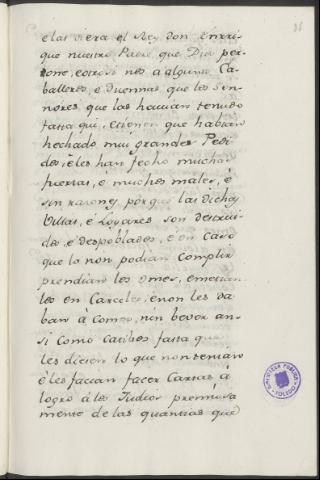 elas diera el Rey don Enrri-
que nuestro Padre que Dios per-
done, é otrosi nos á algunos Ca-
balleros, é Duennas, que los Sen-
nores, que las havian tenido
fasta qui, dicen que habian
hechado mui grandes Pedi-
dos, é les han fecho muchas
fuerzas, é muchos males, é
sin razones, porque las dichas
Villas, é Logares son destrui-
dos, é despoblados, é en caso
que lo non podian complir
prendian los omes, é metian
los en Carceles, é non les da-
ban á comer, nin bever an-
si como cativos fasta que
les diesen lo que non tenian
é les facian facer Cartas á
logro á los Judios
mente de las quantias que
BIBLIOTECA PUBLICA
TOLEDO